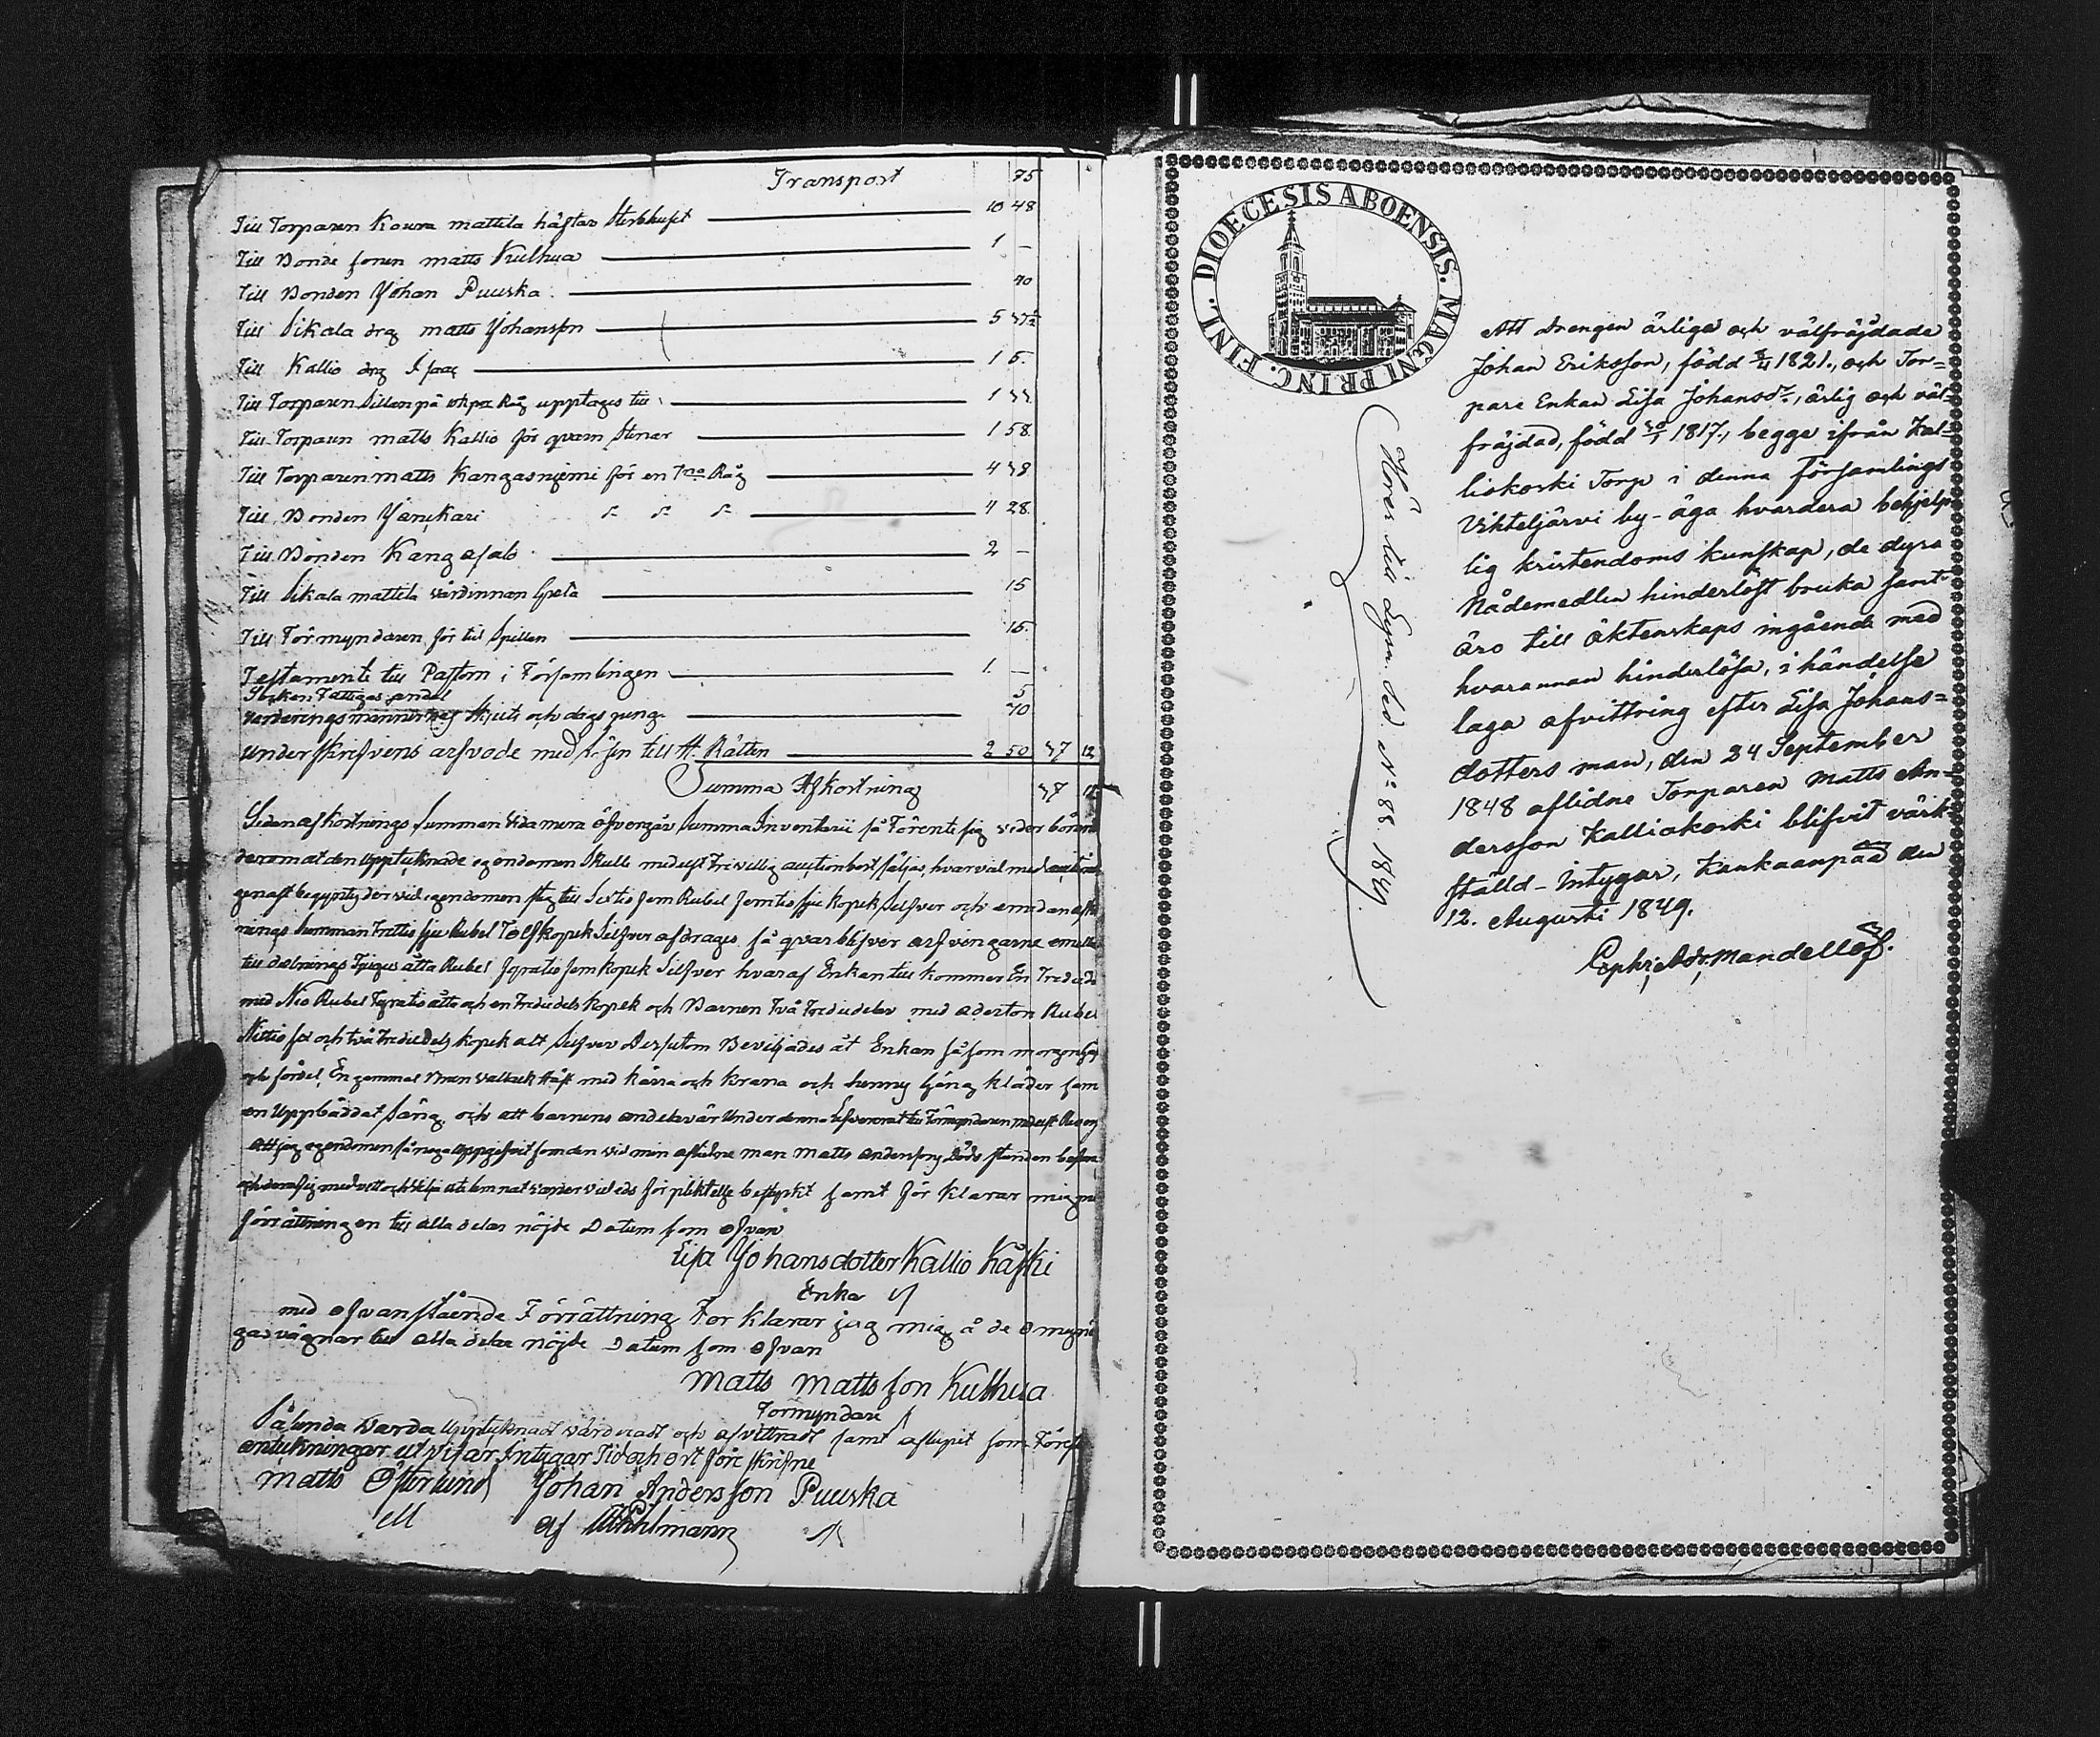 Transport 75
Till Torparen Koura mattila häftar Sterbhuset 10 48
Till Bonde sonen matts Kulhua 1 —
Till Bonden Johan Puuska 70
Till Sikala drg matts Johansson 5
Till Kallio drg Isaac 1 5.
Till Torparen på Råg upptages till 1
Till Torparen matts Kallio för qvarn Stenar 1 58.
Till Torparen matts Kangasniemi för en Tna Råg 4
Till Bonden Yänekari 4 28.
Till Bonden Kangasalo 2 —
Till Sikala mattila värdinnan Greta 15
Till Förmyndaren för tid Spillan 15.
Testamente till Pastorn i Församlingen 1. —
Socken Fattigas andel 5
Värderingsmännernes Skjuts och dags peng. 70
Underskrifvens arfvode med till H. Rätten 2 50 37 12
Summa Afkortning 37 12
Sedan afkortnings Summan vida mera öfvergår Summa Inventarii så Förente sig
derom at den Upptecknade egendomen Skulle medelst Frivillig auction bortsäljas, hvar vid med
genast begyntes der vid egendomen steg till Sextio fem Rubel Femtio sju kopek Silfver och
nings Summan Trettio sju Rubel Tolf kopek Silfver afdrages så qvar blifver arfvingarne
till delnings Tjugu åtta Rubel Fyratio fem kopek Silfver hvaraf Enkan till kommer En Tredjedel
med Nio Rubel Fyratio åtta och en Tredjedels kopek och Barnen Två Tredjedelar med aderton Rubel
Nittio sex och två Tredjedels kopek alt Silfver Dessutom Beviljades åt Enkan så som morgongåfva
och fördel, En gammal Brun Vallack Häst med kärra och krana och Gång kläder som
en Uppbäddat Säng. och att barnens andelar är Under denna till Förmyndaren medelst
Att jag egendomen så noga uppgifvit som den vid min aflidne man Matts Anderssons Döds stunden
och deraf ej med vett och vilja utelemnat varder vid eds förpliktelse bestyrkt samt förklarar mig
förrättningen till alla delar nöjde Datum som ofvan
Lisa Johansdotter Kallio Kåski
Enka
med ofvanstående Förrättning Förklarar jag mig å de omyndi
gas vägnar till alla delar nöjde Datum som ofvan
Matts Mattsson Kulhua
Förmyndare
Sålunda varda Upptecknadt värderadt och afvittradt samt aflupit som Före
antekningar utvisar Intygar Tid och ort före skrifne
Matts Österlund Johan Andersson Puuska
af
DIOECESIS ABOENSIS. MAGNI PRINC. FINL.
Att Drengen ärliga och välfräjdade
Johan Eriksson, född 1821., och Tor=
pare Enkan Lisa Johansdr., ärlig och väl=
fräjdad, född 1817., begge ifrån Kal=
liokoski Torp i denna Församlings
Vihteljärvi by - äga hvardera behjelp=
lig kristendoms kunskap, de dyra
Nådemedlen hinderlöst bruka samt
äro till äktenskaps ingående med
hvarannan hinderlösa, i händelse
laga afvittring efter Lisa Johans=
dotters man, den 24 September
1848 aflidne Torparen Matts An=
dersson Kalliokoski blifvit värk=
ställd - Intygar, Kankaanpää den
12. Augusti 1849.
Mandellöf.
Hörer till Lysn. Sed. No 88. 1849.